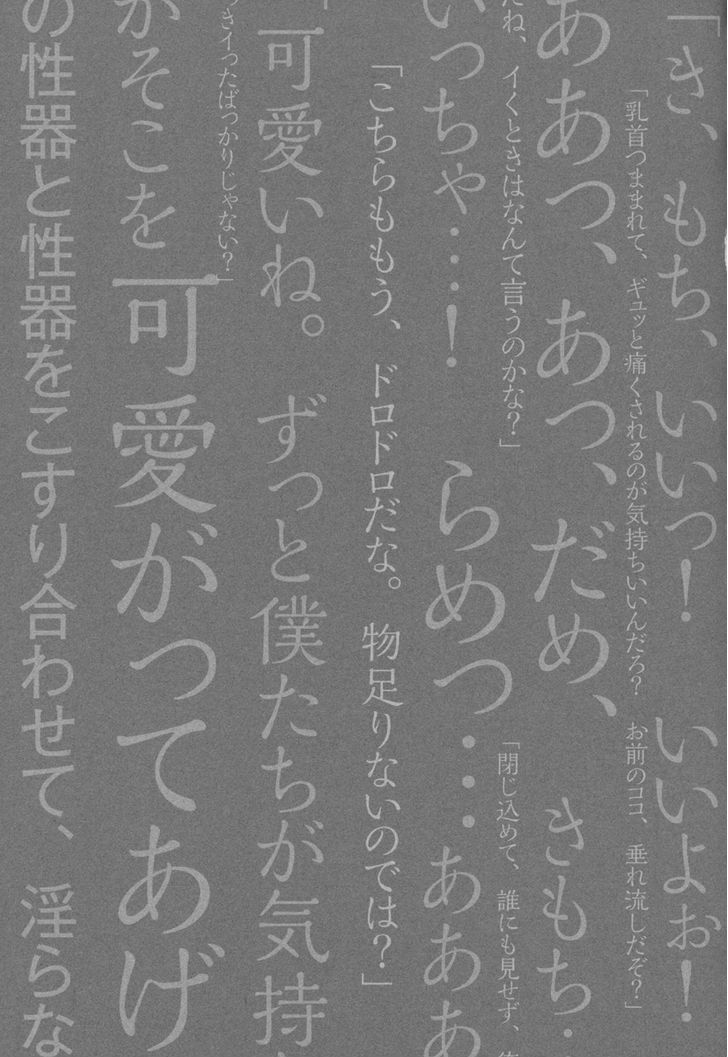 「き、もち、いいっ！　いいよぉ！
「乳首つままれて、ギュッと痛くされるのが気持ちいいんだろ？　お前のココ、垂れ流しだぞ？」
ああつ、あつ、だめ、　きもち
だね、イくときはなんて言うのかな？」
「閉じ込めて、誰にも見せず、
いっちゃ…！　らめつ…あああ
「こちらももう、ドロドロだな。物足りないのでは？」
「可愛いね。ずっと僕たちが気持
っきイったばっかりじゃない？」
がそこを可愛がってあげ
の性器と性器をこすり合わせて、淫らな